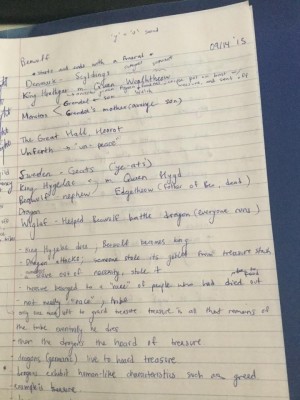 "y" = "e" sound
09/14 '15
Beowulf
• starts and ends with a funeral
Denmark - Scyldings
King Hrothgar m. Queen Wealhtheow
Monsters
Grendel - son
Grendel's mother (avenge son)
The Great Hall Heorot
Unferth → "un-peace"
Sweden - Geats (ye-ats)
King Hygelac m. Queen Hygd
Beowulf - nephew Edgetheow (father of Beo, dead)
Dragon
Wiglaf - Helped Beowulf battle dragon (everyone runs)
- King Hygelac dies, Beowulf becomes king
- Dragon attacks; someone stole its goblet from treasure stash
- slave out of necessity, stole it
- hoard belonged to a "race" of people who had died out
- not really "race",
- only one man left to guard treasure treasure is all that remains of
the tribe eventually he dies
- then the dragon the hoard of treasure
- dragons (germanic) live to hoard treasure
- dragons exhibit human-like characteristics such as greed